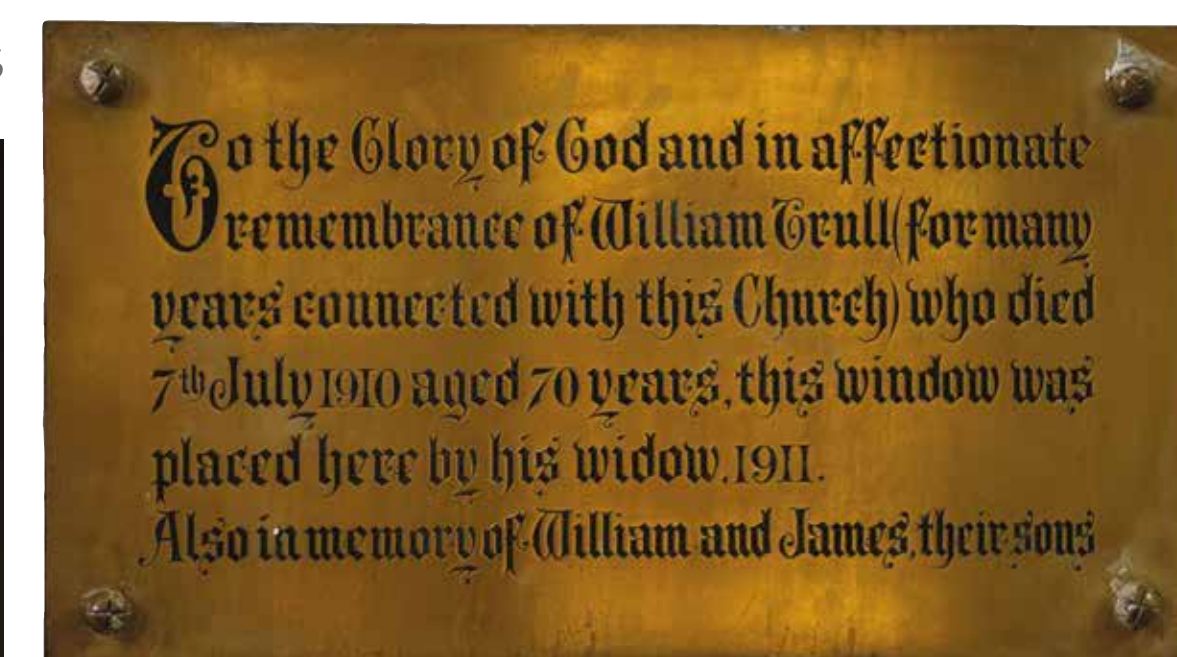 To the Glory of God and in affectionate
remembrance of William Trull (for many
years connected with this Church) who died
7th July 1910 aged 70 years, this window was
placed here by his widow. 1911.
Also in memory of William and James, their sons